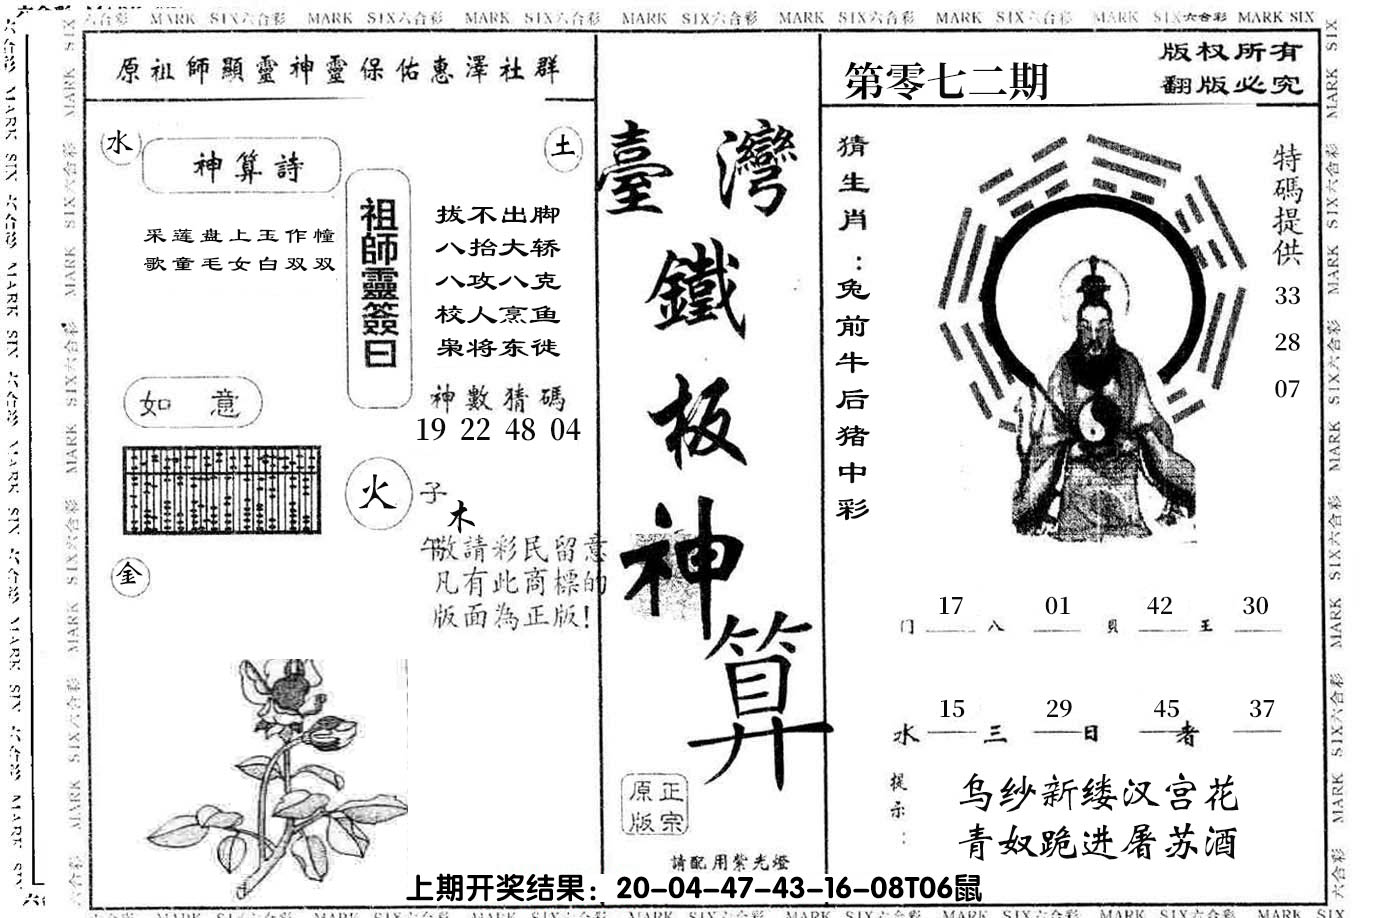 六合彩 MARK SIX六合彩 MARK SIX六合彩 MARK SIX六合彩 MARK SIX六合彩 MARK SIX六合彩 MARK SIX六合彩 MARK SIX六合彩 MARK SIX
原祖師顯靈神靈保佑惠澤社群
水
神算詩
土
采莲盘上玉作幢
歌童毛女白双双
祖師靈簽曰
拔不出脚
八抬大轿
八攻八克
校人烹鱼
枭将东徙
神數猜碼
19 22 48 04
如 意
火
子
木
午
金
敬請彩民留意
凡有此商標的
版面為正版!
臺灣
鐵
板
神
算
正宗
原版
請配用紫光燈
第零七二期
版权所有
翻版必究
猜生肖：兔前牛后猪中彩
特碼提供
33
28
07
17 01 42 30
门 八 貝 王
15 29 45 37
水 三 日 者
提示：
乌纱新缕汉宫花
青奴跪进屠苏酒
上期开奖结果：20-04-47-43-16-08T06鼠